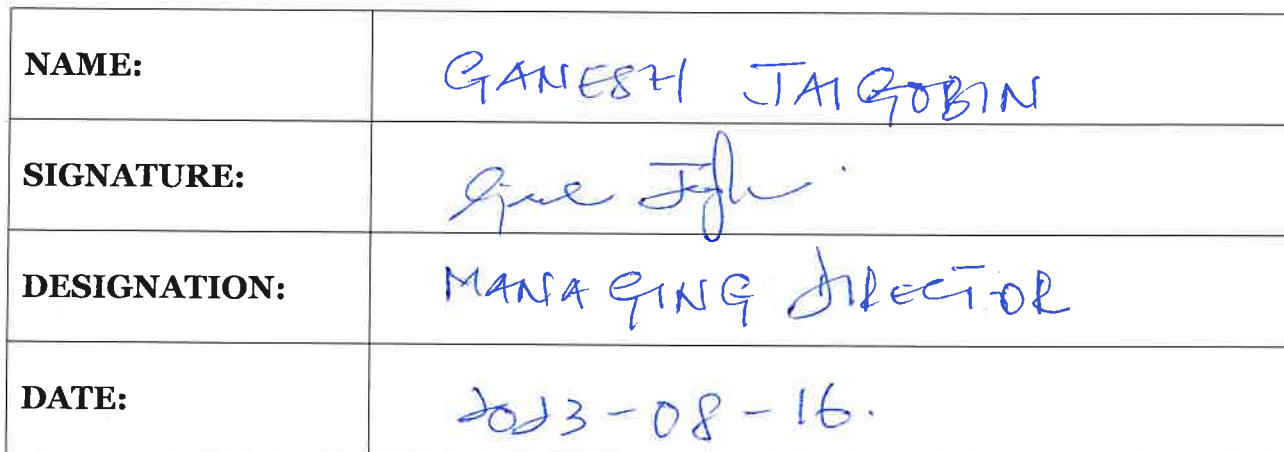 NAME: GANESH JAIGOBIN
SIGNATURE:
DESIGNATION: MANAGING DIRECTOR
DATE: 2023-08-16.